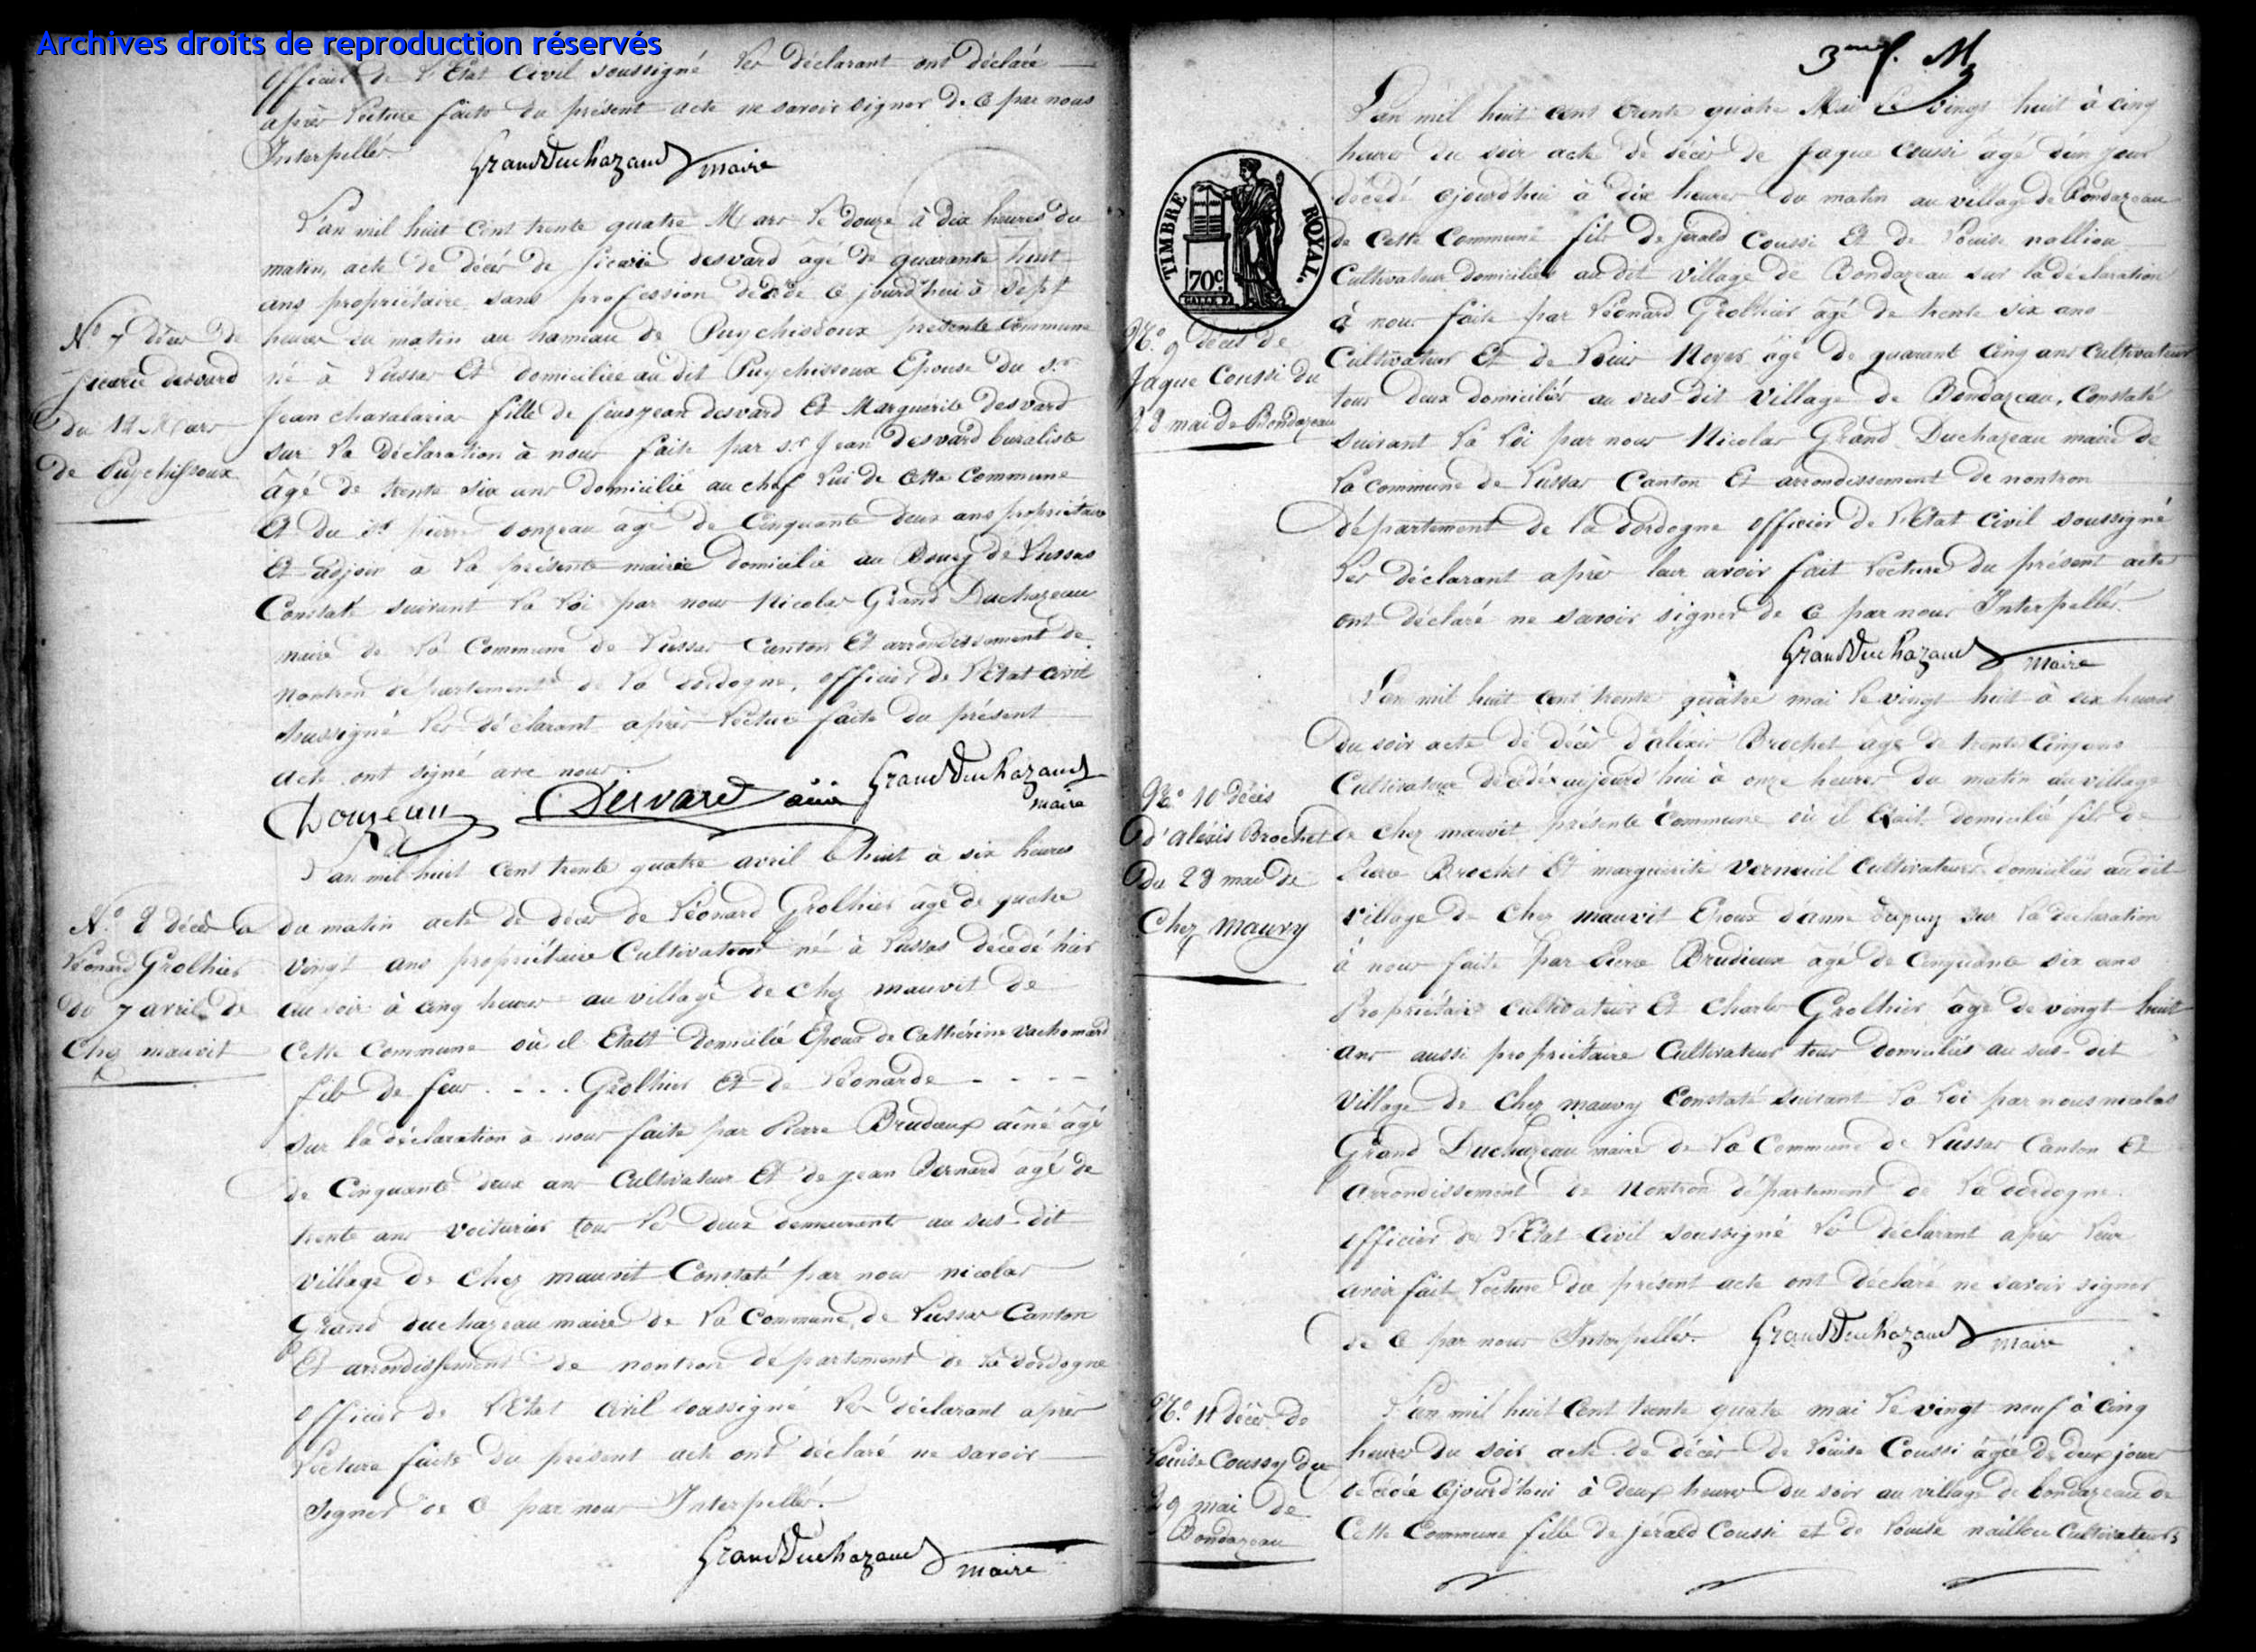 Archives droits de reproduction réservés
officier de l'Etat Civil soussigné les déclarant ont déclaré
après lecture faite du présent acte ne savoir signer de ce par nous
Interpellé.
GrandDuchazaud maire
L'an mil huit cent trente quatre Mars le douze à dix heures du
matin, acte de décès de sicarie desvard âgé de quarante huit
ans propriétaire sans profession décédé ce jourd'hui à sept
heures du matin au hameau de Puychissoux présente Commune
né à Lussas Et domiciliée au dit Puychissoux Epouse du sr
Jean chavalarias fille de feus jean desvard Et Marguerite desvard
sur la déclaration à nous faite par sr Jean desvard buraliste
âgé de trente six ans domicilié au chef lui de cette Commune
Et du sr pierre donzeau âgé de Cinquante deux ans propriétaire
Et adjoin à la présente mairie domicilié au Bourg de Lussas
Constaté suivant la loi par nous Nicolas Grand Duchazeau
maire de la Commune de Lussas Canton Et arrondissement de
Nontron département de la dordogne, officier de l'Etat civil
soussigné les déclarant après lecture faite du présent
acte ont signé avec nous.
Donzeau Desvard ainé GrandDuchazaud
maire
N.º 7 décès de
sicarie desvard
du 12 Mars
de Puychissoux
L'an mil huit cent trente quatre avril le huit à six heures
du matin acte de décès de Léonard Grolhier âgé de quatre
vingt ans propriétaire Cultivateur né à Lussas décédé hier
au soir à cinq heures au village de chez mauvit de
Cette Commune où il Etait domicilié Epoux de Cathérine vachomard
fils de feus . - - . Grolhier Et de Léonarde - - - -
sur la déclaration à nous faite par Pierre Brudieux aîné âgé
de Cinquante deux ans Cultivateur Et de jean Bernard âgé de
trente ans voiturier tous les deux demeurants au sus-dit
village de chez mauvit Constaté par nous nicolas
Grand duchazeau maire de la Commune de Lussas Canton
Et arrondissement de nontron département de la dordogne
officier de l'Etat civil soussigné les déclarant après
lecture faite du présent acte ont déclaré ne savoir
signer de ce par nous Interpellé.
GrandDuchazaud maire
N.º 8 décès de
Léonard Grolhier
du 7 avril de
chez mauvit
3me f. M
TIMBRE ROYAL.
70c
L'an mil huit cent trente quatre Mai le vingt huit à cinq
heures du soir acte de décès de Jaque Coussi âgé d'un jour
décédé cejourd'hui à dix heures du matin au village de Bondazeau
de cette Commune fils de jerald Coussi Et de Louise nalliou
Cultivateur domiciliés au dit village de Bondazeau sur la déclaration
à nous faite par Léonard Grolhier âgé de trente six ans
Cultivateur Et de Louis Noyer âgé de quarant cinq ans cultivateur
tous deux domiciliés au sus dit village de Bondazeau, Constaté
suivant la loi par nous Nicolas Grand Duchazeau maire de
la commune de Lussas Canton Et arrondissement de nontron
département de la dordogne officier de l'Etat civil soussigné
les déclarant après leur avoir fait lecture du présent acte
ont déclaré ne savoir signer de ce par nous Interpellé.
GrandDuchazaud maire
N.º 9 décès de
Jaque Coussi du
28 mai de Bondazeau
L'an mil huit cent trente quatre mai le vingt huit à six heures
du soir acte de décès d'aléxis Brochet âgé de trente cinq ans
Cultivateur décédé aujourd'hui à onze heures du matin au village
de chez mauvit présente commune où il Etait domicilié fils de
Pierre Brochet Et marguerite verneuil cultivateurs domiciliés au dit
village de chez mauvit Epoux d'anne dupuy sur la déclaration
à nous faite par Pierre Brudieux âgé de cinquante six ans
Propriétaire cultivateur Et charles Grolhier âgé de vingt huit
ans aussi propriétaire cultivateur tous domiciliés au sus-dit
village de chez mauvy Constaté suivant la loi par nous nicolas
Grand Duchazeau maire de la Commune de Lussas Canton Et
arrondissement de Nontron département de la dordogne
officier de l'Etat civil soussigné les déclarant après leur
avoir fait lecture du présent acte ont déclaré ne savoir signer
de ce par nous Interpellé. GrandDuchazaud maire
N.º 10 décès
d'aléxis Brochet
du 28 mai de
Chez mauvy
L'an mil huit cent trente quatre mai le vingt neuf à cinq
heures du soir acte de décès de Louise Coussi âgée de deux jours
décédée cejourd'hui à deux heures du soir au village de bondazeau de
cette Commune fille de jérald Coussi et de Louise naillou cultivateurs
N.º 11 décès de
Louise Coussy du
29 mai de
Bondazeau